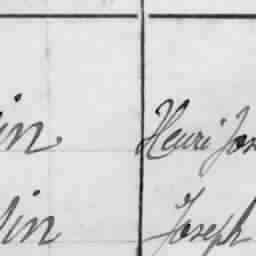 in Henri Jos
lin Joseph